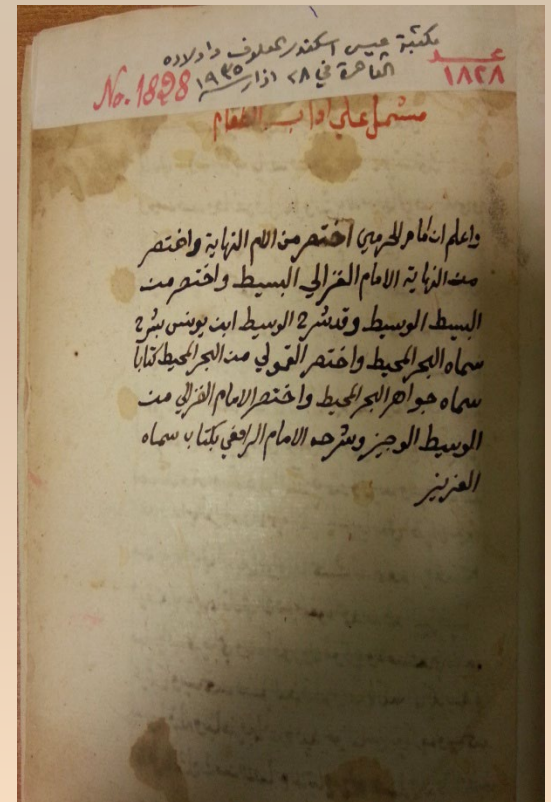 مكتبة عيسى اسكندر المعلوف واولاده
القاهرة في ٢٨ اذار سنة ١٩٣٥
عدد
١٨٢٨
No. 1828
مشتمل على اداب
واعلم ان امام الحرمين اختصر من الام النهاية واختصر
من النهاية الامام الغزالي البسيط واختصر من
البسيط الوسيط وقد شرح الوسيط ابن يونس بشرح
سماه البحر المحيط واختصر القمولي من البحر المحيط كتابا
سماه جواهر البحر المحيط واختصر الامام الغزالي من
الوسيط الوجيز وشرحه الامام الرافعي بكتاب سماه
العزيز